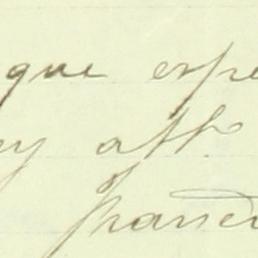 que espe
ey atto
Franci